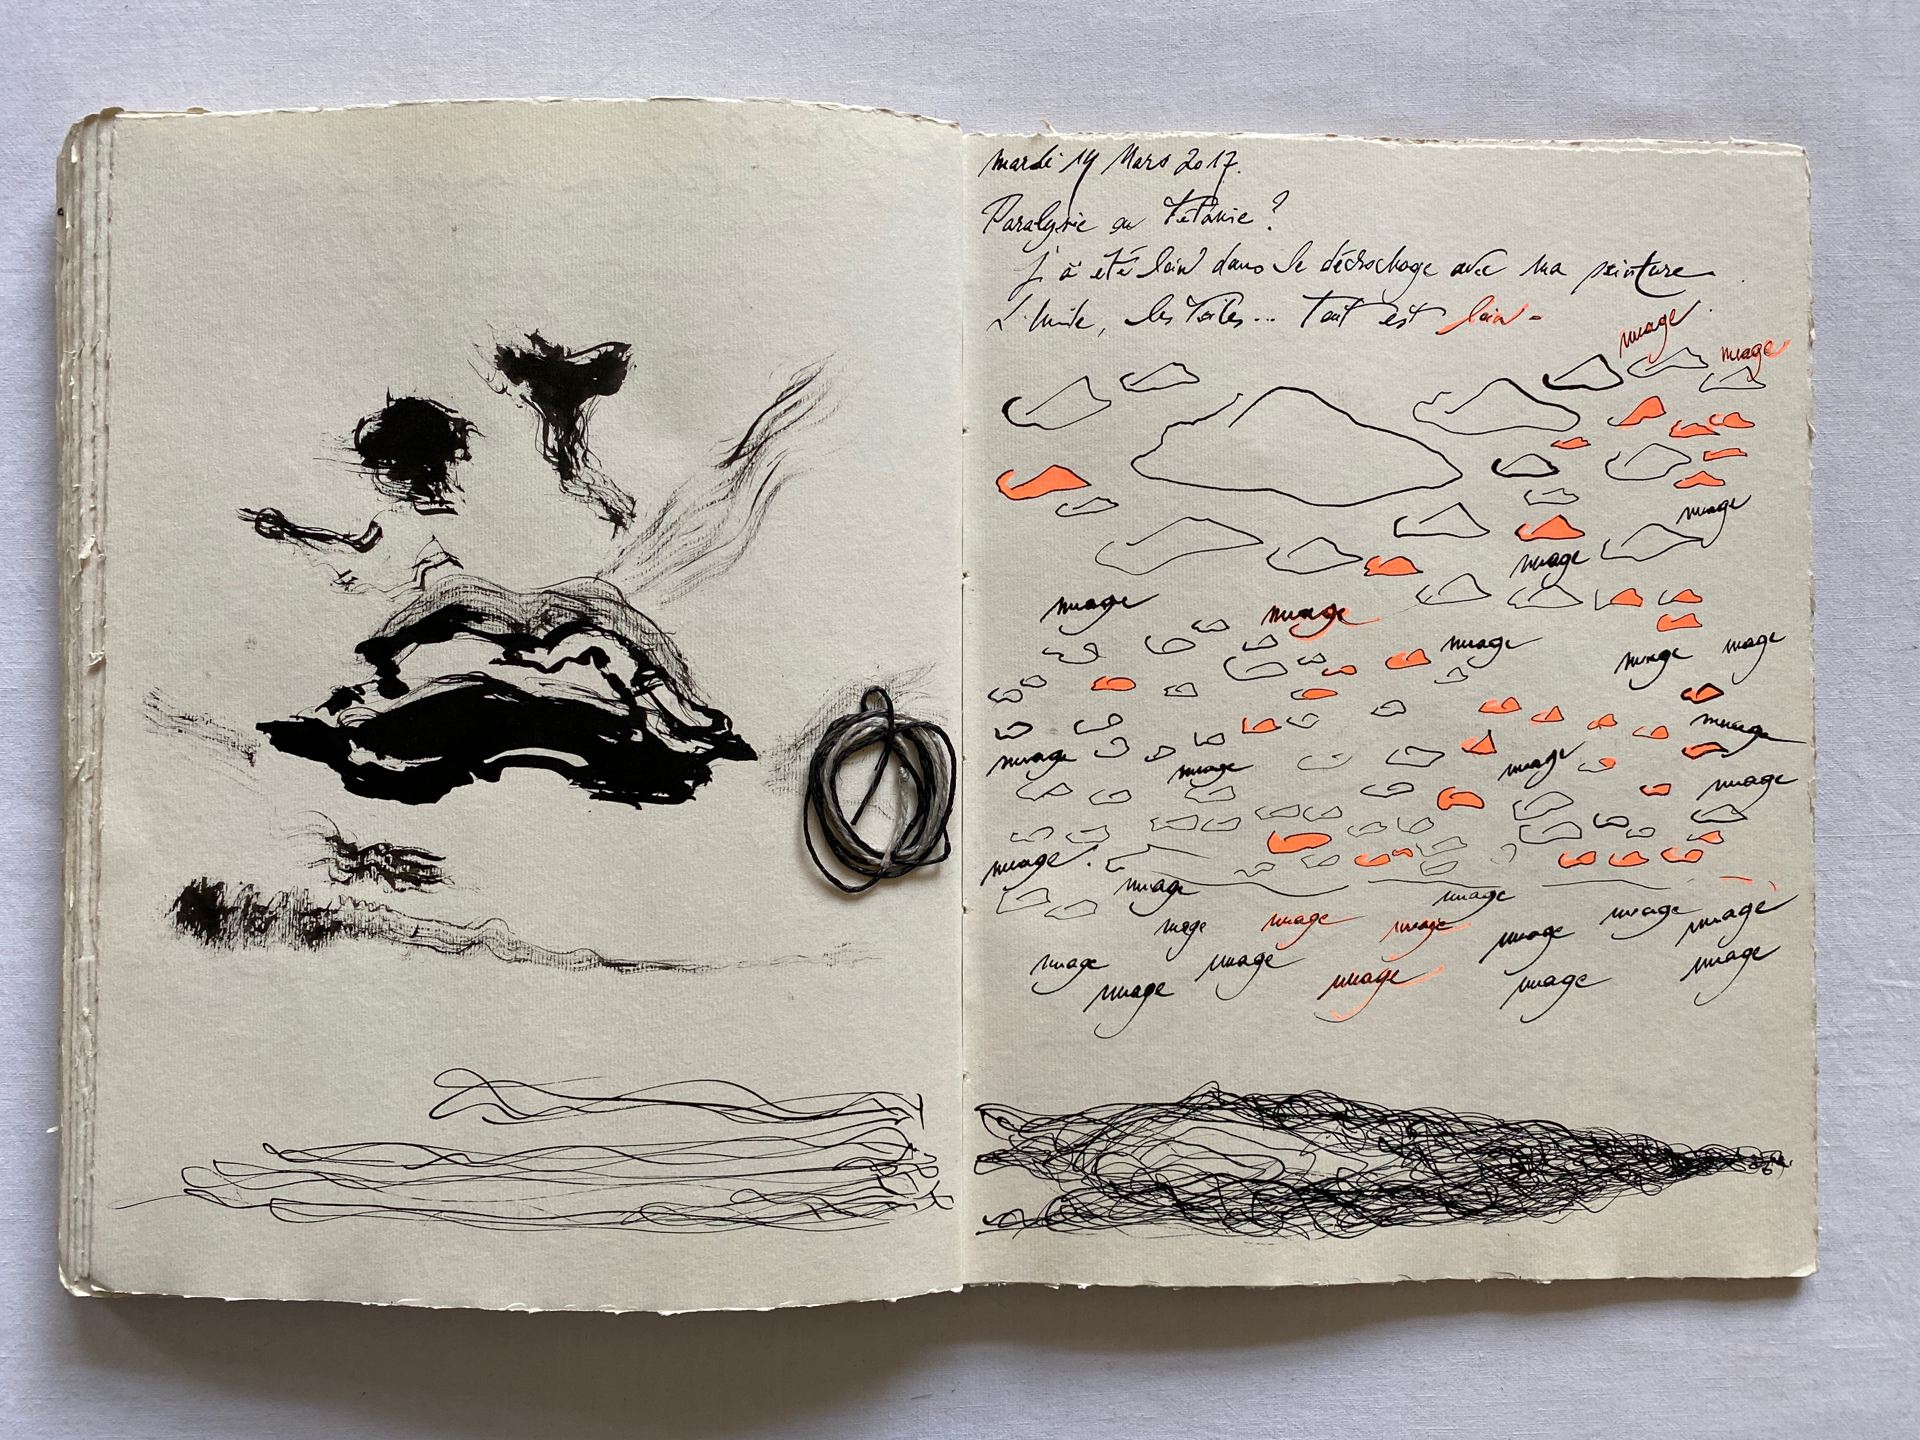 mardi 14 Mars 2017.
Paralysie ou Tétanie ?
J'ai été loin dans le décrochage avec ma peinture
L'huile, les Toiles... Tout est loin.
nuage
nuage
nuage
nuage
nuage nuage
nuage nuage nuage
nuage
nuage nuage nuage
nuage
nuage
nuage nuage
nuage nuage nuage nuage nuage nuage
nuage nuage nuage nuage
nuage nuage